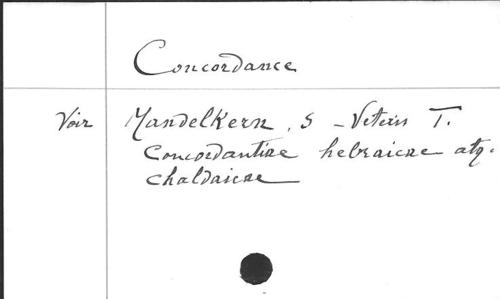 Concordance
Voir Mandelkern, S - Veteris T.
Concordantiae hebraicae atq.
chaldaicae